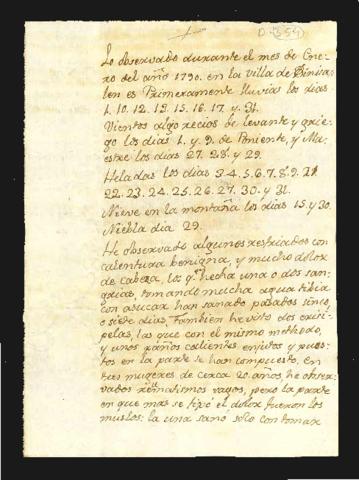 D-654
Lo observado durante el mes de Ene-
ro del año 1790. en la villa de Binisa-
lem es Primeramente lluvias los dias
1. 10. 12. 13. 15. 16. 17. y 31.
Vientos algo recios de levante y grie-
go los dias 1. y 9. de Poniente, y Ma-
estre los dias 27. 28. y 29.
Heladas los dias 3. 4. 5. 6. 7. 8. 9. 21
22. 23. 24. 25. 26. 27. 30. y 31.
Nieve en la montaña los dias 15. y 30.
Niebla dia 29.
He observado algunos resfriados con
calentura benigna, y mucho dolor
de cabeza, los qe. hecha una o dos san-
grias, tomando mucha agua tibia
con asucar han sanado pasados sinco,
o siete dias, Tambien he visto dos erisi-
pelas, las que con el mismo methodo,
y unos paños calientes enjutos y pues-
tos en la parte se han compuesto, en
tres mugeres de cerca 20. años, he obser-
vados reumatismos vagos, pero la parte
en que mas se fixó el dolor fueron los
muslos: la una sano solo con tomar